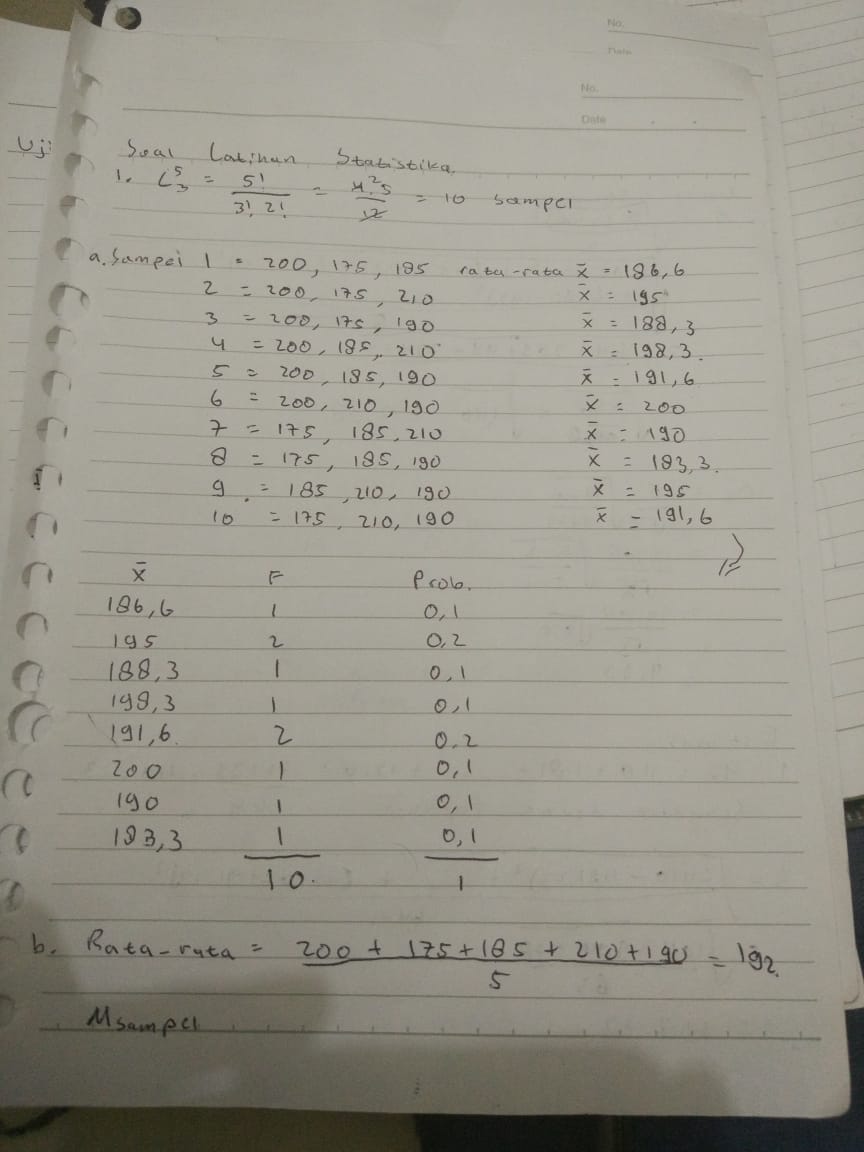 No.
Date
No.
Date
Uji
Soal Latihan Statistika.
1. C⁵₃ = 5! / 3! 2! = 4.² 5 / 12 = 10 sampel
a. Sampel 1 = 200, 175, 185 rata-rata x̄ = 186,6
2 = 200, 175, 210 x̄ = 195
3 = 200, 175, 190 x̄ = 188,3
4 = 200, 185, 210 x̄ = 198,3.
5 = 200, 185, 190 x̄ = 191,6
6 = 200, 210, 190 x̄ = 200
7 = 175, 185, 210 x̄ = 190
8 = 175, 185, 190 x̄ = 183,3.
9 = 185, 210, 190 x̄ = 195
10 = 175, 210, 190 x̄ = 191,6
x̄ F Prob.
186,6 1 0,1
195 2 0,2
188,3 1 0,1
198,3 1 0,1
191,6 2 0,2
200 1 0,1
190 1 0,1
183,3 1 0,1
10. 1
b. Rata-rata = 200 + 175 + 185 + 210 + 190 / 5 = 192.
Msampel